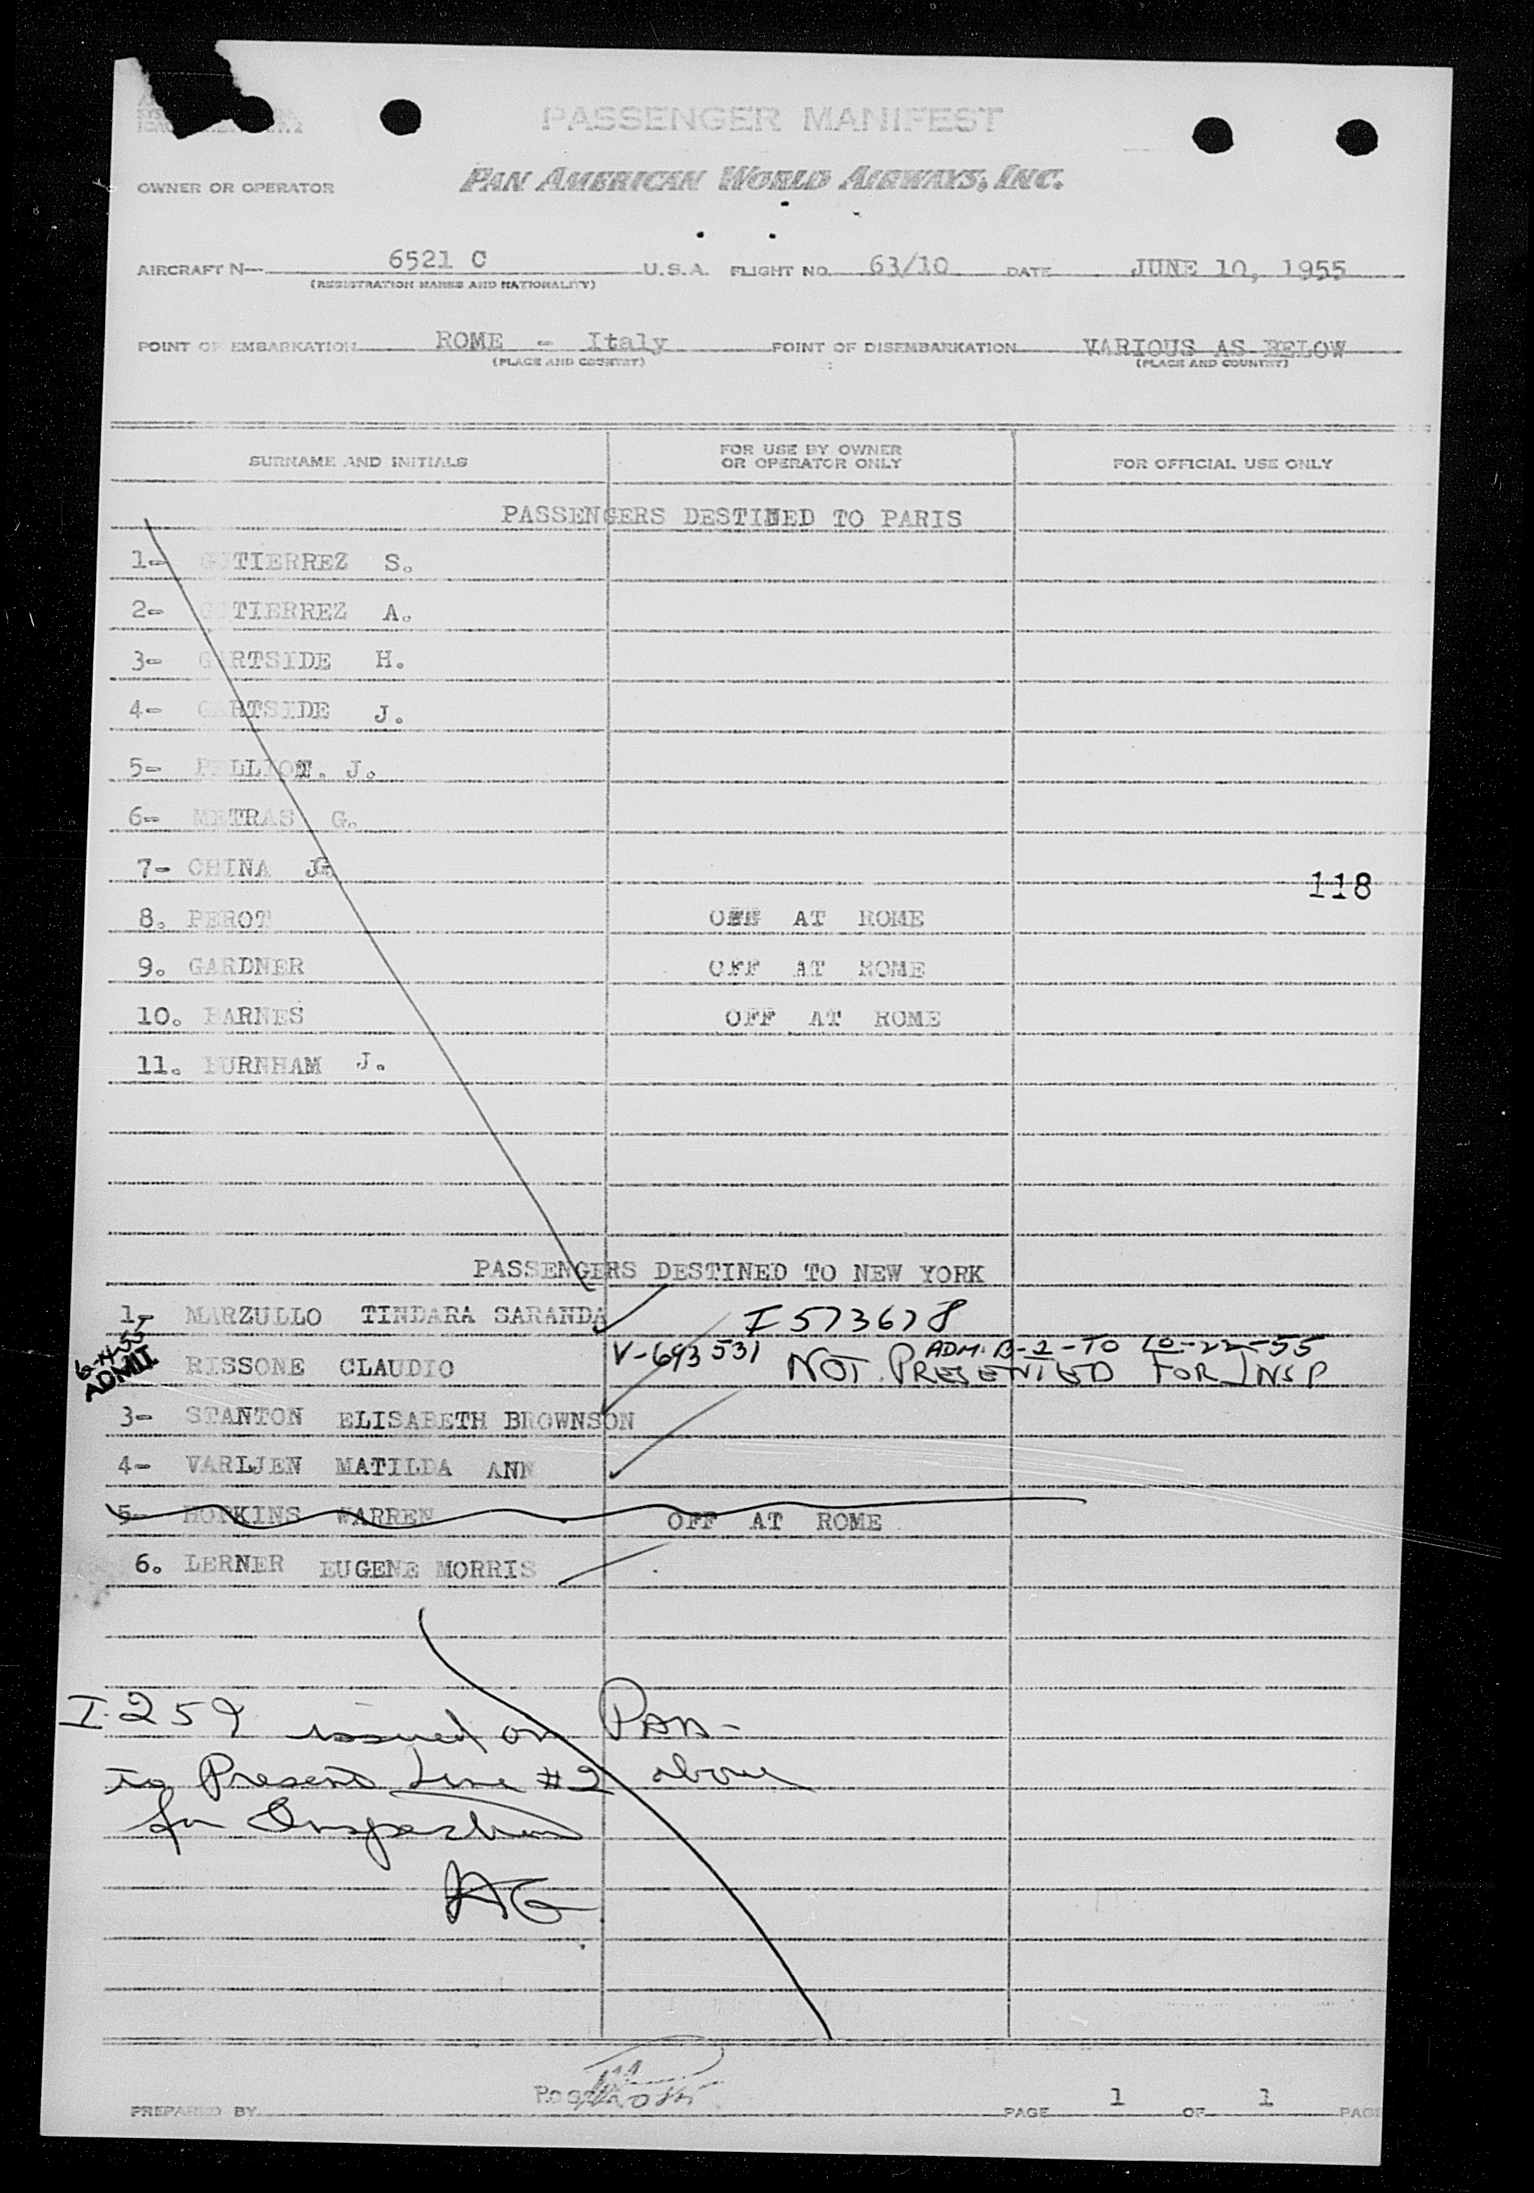 PASSENGER MANIFEST
OWNER OR OPERATOR PAN AMERICAN WORLD AIRWAYS, INC.
AIRCRAFT N- 6521 C U.S.A. FLIGHT NO. 63/10 DATE JUNE 10, 1955
(REGISTRATION MARKS AND NATIONALITY)
POINT OF EMBARKATION ROME - Italy POINT OF DISEMBARKATION VARIOUS AS BELOW
(PLACE AND COUNTRY) (PLACE AND COUNTRY)
SURNAME AND INITIALS FOR USE BY OWNER OR OPERATOR ONLY FOR OFFICIAL USE ONLY
PASSENGERS DESTINED TO PARIS
1- GUTIERREZ S.
2- GUTIERREZ A.
3- GARTSIDE H.
4- GARTSIDE J.
5- PELLIOT. J.
6- METRAS G.
7- CHINA
118
8. PEROT OFF AT ROME
9. GARDNER OFF AT ROME
10. BARNES OFF AT ROME
11. BURNHAM J.
PASSENGERS DESTINED TO NEW YORK
1- MARZULLO TINDARA SARANDA I 573678
6-14-55 ADMIT. RISSONE CLAUDIO V-693531 ADM. B-2-TO 10-22-55
NOT PRESENTED FOR INSP
3- STANTON ELISABETH BROWNSON
4- VARLJEN MATILDA ANN
5- HOPKINS WARREN OFF AT ROME
6. LERNER EUGENE MORRIS
I-259 issued on PAA-
to Present Line #2 above
for Inspection
PREPARED BY PAGE 1 OF 1 PAGE